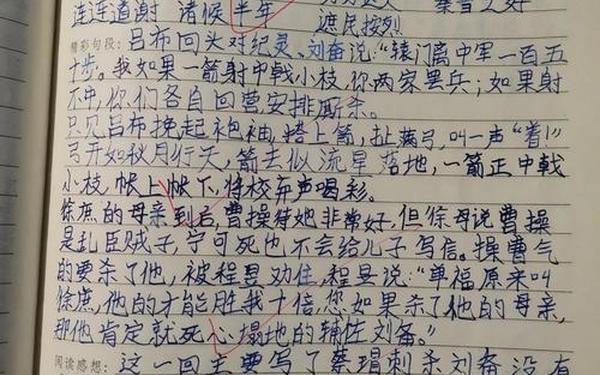 连连道谢 诸侯半年
遮民按烈
精彩句段：吕布回头对纪灵、刘备说：“辕门离中军一百五
十步。我如果一箭射中戟小枝，你两家罢兵；如果射
不中，你们各自回营安排厮杀。
只见吕布挽起袍袖，搭上箭，扯满弓，叫一声“着！”
弓开如秋月行天，箭去似流星落地，一箭正中戟
小枝，帐上帐下，将校齐声喝彩。
徐庶的母亲到后，曹操待她非常好，但徐母说曹操
是乱臣贼子，宁可死也不会给儿子写信。操曹气
的要杀了他，被程昱劝住，程昱说：“单福原来叫
徐庶，他的才能胜我十倍，您如果杀了他的母亲，
那他肯定就死心塌地的辅佐刘备。”
阅读感想：这一回主要写了蔡瑁刺杀刘备没有